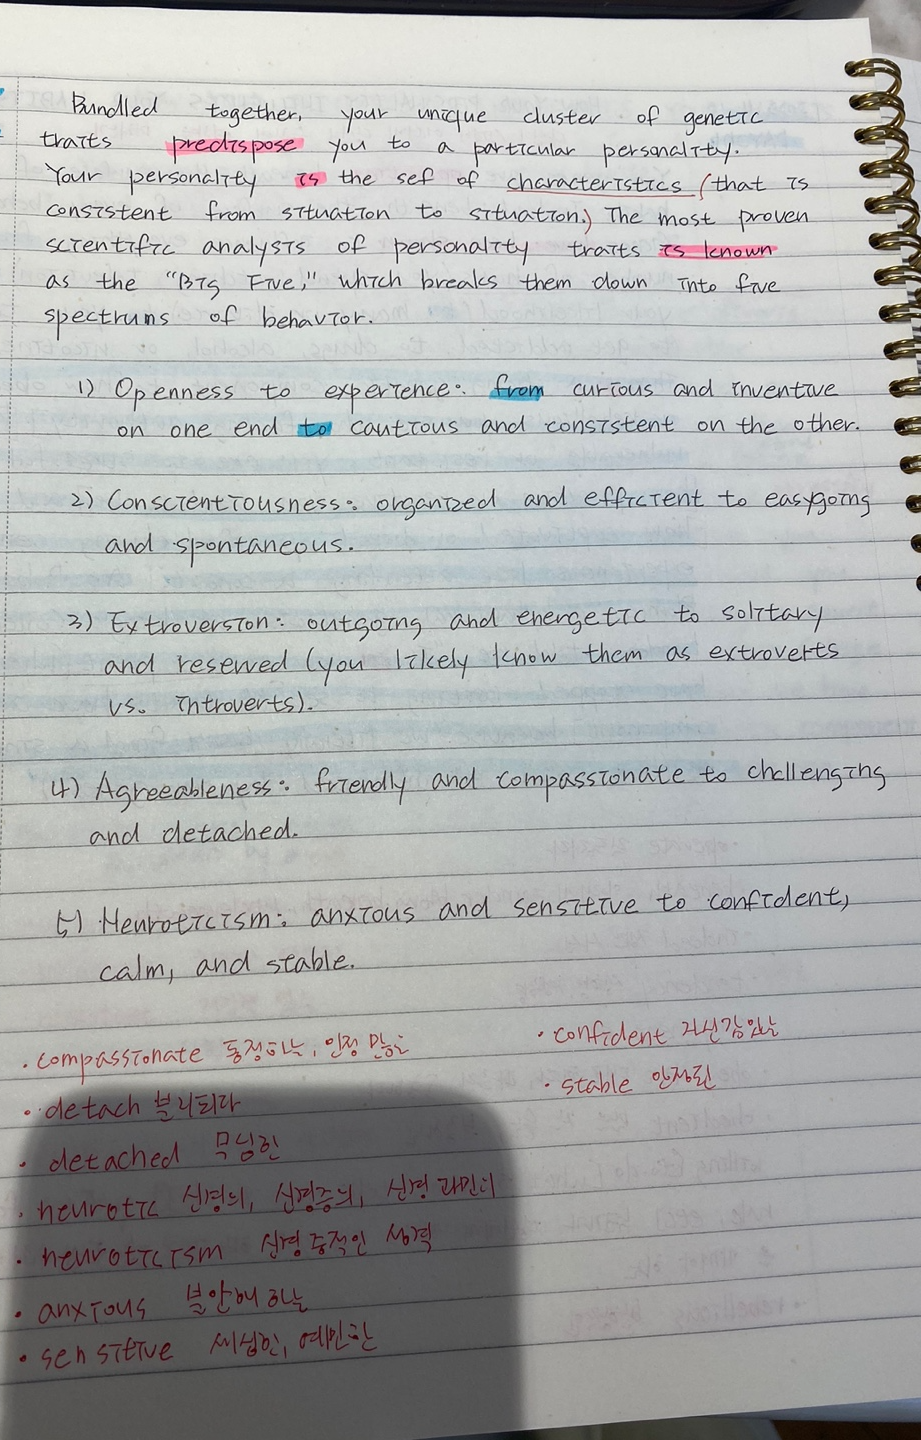 Bundled together, your unique cluster of genetic
traits predispose you to a particular personality.
Your personality is the set of characteristics (that is
consistent from situation to situation.) The most proven
scientific analysis of personality traits is known
as the "Big Five," which breaks them down into five
spectrums of behavior.
1) Openness to experience: from curious and inventive
on one end to cautious and consistent on the other.
2) Conscientiousness: organized and efficient to easygoing
and spontaneous.
3) Extroversion: outgoing and energetic to solitary
and reserved (you likely know them as extroverts
vs. introverts).
4) Agreeableness: friendly and compassionate to challenging
and detached.
5) Neuroticism: anxious and sensitive to confident,
calm, and stable.
· compassionate 동정하는, 인정 많은
· detach 분리되다
· detached 무심한
· neurotic 신경의, 신경증의, 신경 과민의
· neuroticism 신경증적인 성격
· anxious 불안해 하는
· sensitive 세심한, 예민한
· confident 자신감있는
· stable 안정된